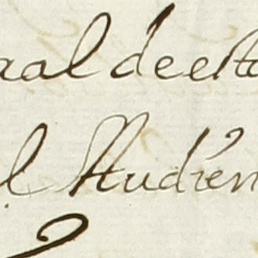 aal de esta
l Audien